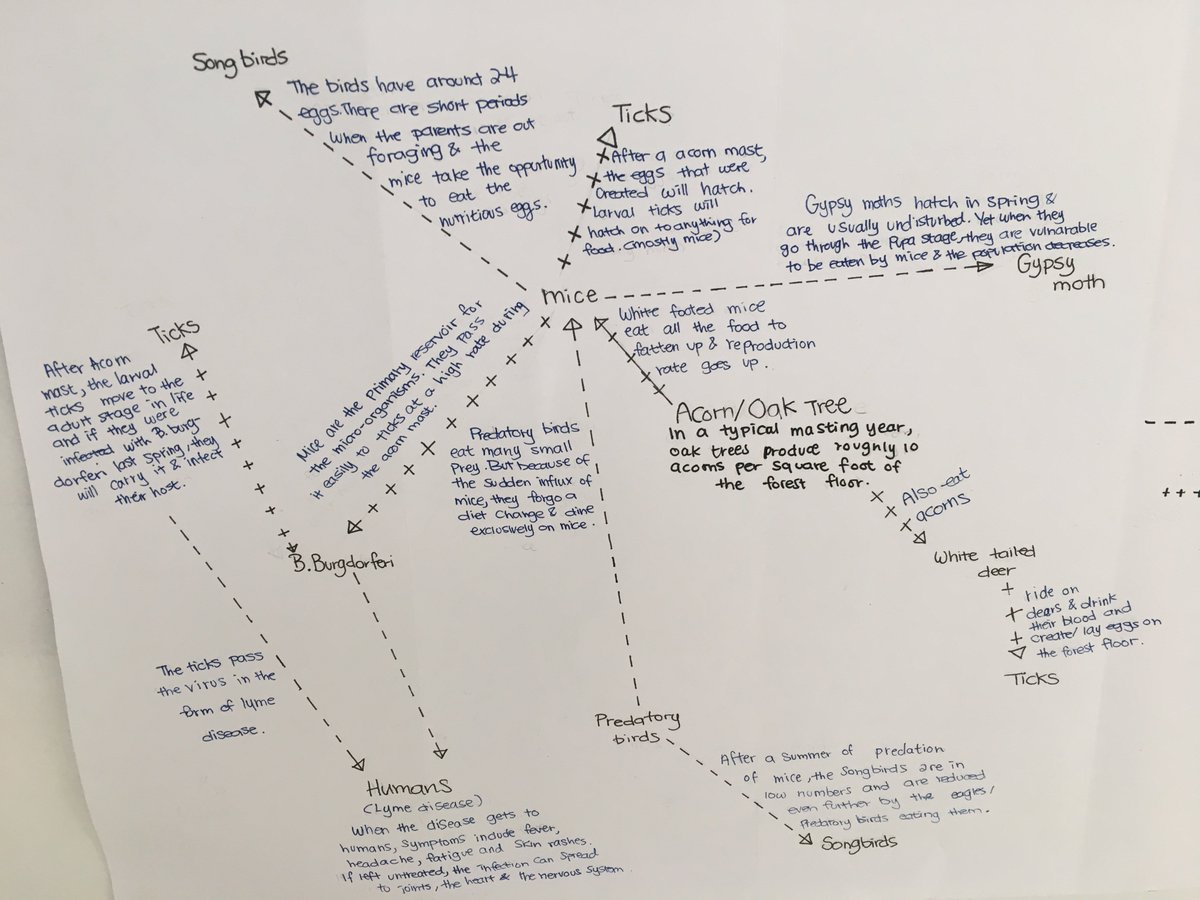 Songbirds
The birds have around 2-4
eggs. There are short periods
when the parents are out
foraging & the
mice take the opputunity
to eat the
nutritious eggs.
Ticks
After a acorn mast,
the eggs that were
created will hatch.
larval ticks will
hatch on to anything for
food. (mostly mice)
Gypsy moths hatch in spring &
are usually undisturbed. Yet when they
go through the Pupa stage, they are vulnarable
to be eaten by mice & the population decreases.
Gypsy
moth
mice
White footed mice
eat all the food to
fatten up & reproduction
rate goes up.
Mice are the primary reservoir for
the micro-organisms. They pass
it easily to ticks at a high rate during
the acorn mast.
Ticks
After Acorn
mast, the larval
ticks move to the
adult stage in life
and if they were
infected with B. burg-
dorferi last spring, they
will carry it & infect
their host.
Acorn/Oak Tree
In a typical masting year,
oak trees produce roughly 10
acorns per square foot of
the forest floor.
Predatory birds
eat many small
Prey. But because of
the sudden influx of
mice, they forgo a
diet change & dine
exclusively on mice.
Also eat
acorns
B. Burgdorferi
White tailed
deer
ride on
dears & drink
their blood and
create/lay eggs on
the forest floor.
Ticks
The ticks pass
the virus in the
form of lyme
disease.
Predatory
birds
After a summer of predation
of mice, the songbirds are in
low numbers and are reduced
even further by the eagles/
Predatory birds eating them.
Songbirds
Humans
(Lyme disease)
When the disease gets to
humans, symptoms include fever,
headache, fatigue and skin rashes.
If left untreated, the infection can spread
to joints, the heart & the nervous system.